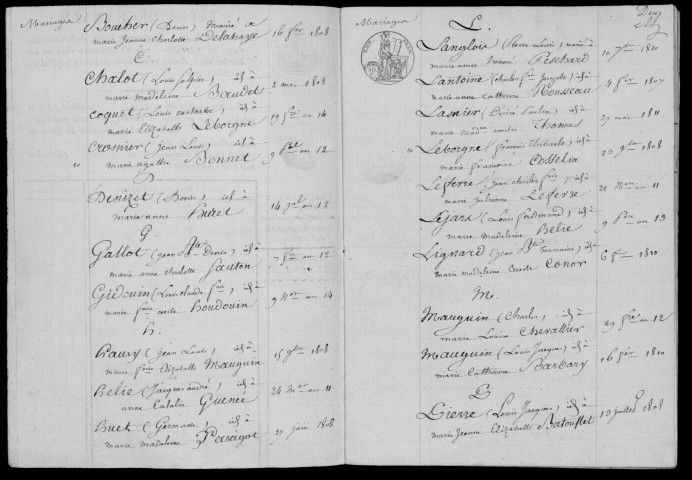 Mariages
Boucher (Denis) Marié à
marie Jeanne Charlotte Delahaye 16 fer 1808
C.
Chalot (Louis Sulpice) id à
marie Madeleine Baudot 2 mai 1808
Coquet (Louis Eustache) id à
marie Elizabeth Leborgne 19 fre an 14
Crosnier (Jean Louis) id à
marie agathe Bonnet 9 an 12
D
Denizet (Denis) id à
marie anne Huret 14 an 12
G.
Gallot (Jean Bte Denis) id à
marie anne Charlotte Sauton 7 an 12
Gidouin (Louis Claude) id à
marie cecile Houdouin 9 an 14
h.
haury (Jean Louis) id à
marie Elizabeth Mauguin 15 9bre 1808
helie (Jacques andré) id à
anne Eulalie Guenée 24 an 11
huet (Germain) id à
marie madeleine Paragot 27 juin 1808
Mariages
L.
Langlois (Pierre Louis) marié à
marie anne honoré Peschard 10 7bre 1810
Lantoine (Charles Joseph) id à
marie anne Catherine Rousseau 4 fer 1807
Lasnier (Désiré Paulin) id à
marie Thomas 27 mai 1811
Leborgne (François Thibault) id à
marie françoise Cosselin 22 9bre 1808
Lefevre (Jean Charles) id à
marie Julienne Lefevre 21 an 11
Lejars (Louis ferdinand) id à
marie Madeleine Helie 9 an 13
Lignard (Jean Bte) id à
marie madeleine Cecile Conor 6 1810
M.
Mauguin (Charles) id à
marie Louise Chevallier 29 an 12
Mauguin (Louis Jacques) id à
marie Catherine Barbary 16 fer 1810
P
Pierre (Louis Jacques) id à
marie Jeanne Elizabeth Batouflet 19 juillet 1808